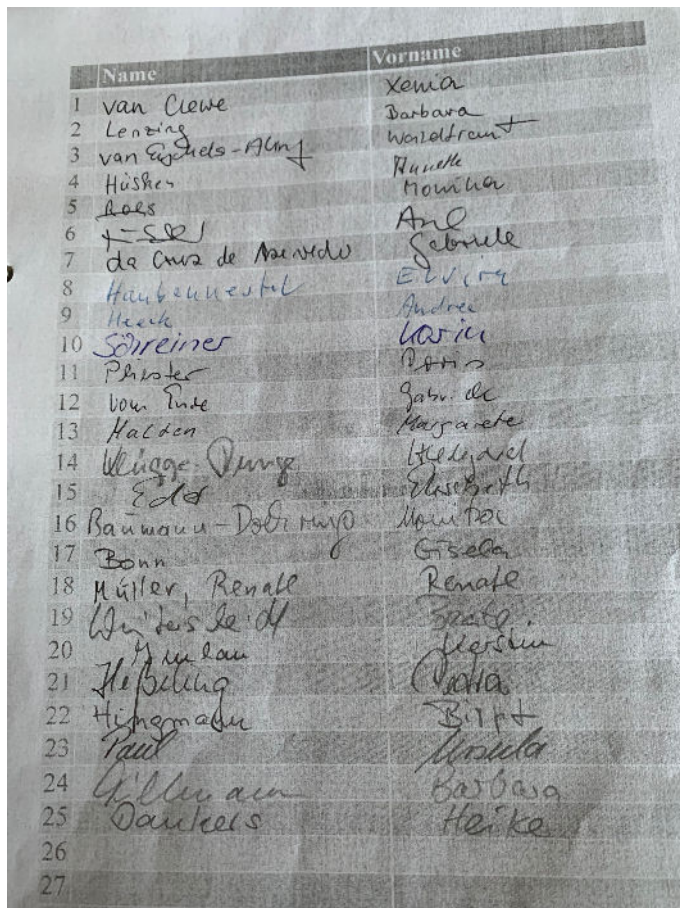 Name Vorname
1 van Clewe Xenia
2 Lenzing Barbara
3 van Waldtraut
4 Hüsken Annette
5 Roes Monika
6 Axel
7 da Cruz de Azevedo Gabriele
8 Haubennestel Elvira
9 Heeck Andrea
10 Schreiner Karin
11 Priester Doris
12 vom Ende Gabriele
13 Malden Margarete
14 Klügge Hildegard
15 Eder Elisabeth
16 Baumann - Monika
17 Bonn Gisela
18 Müller, Renate Renate
19 Beate
20 Kerstin
21 Heßeling Maria
22 Hüngmann Birgit
23 Paul Ursula
24 Gillmann Barbara
25 Dankers Heike
26
27